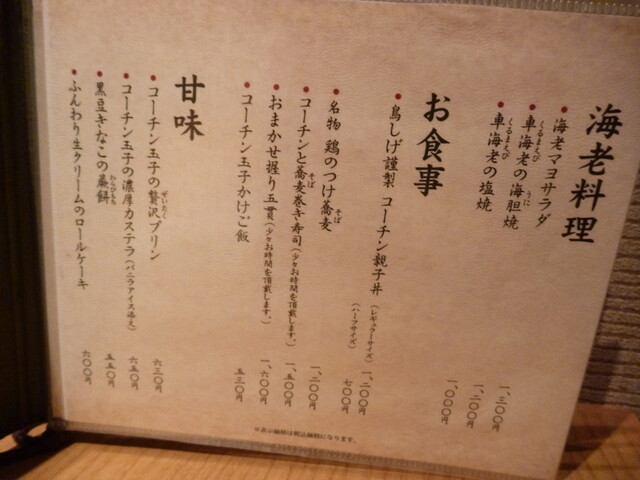 海老料理
海老マヨサラダ 一、三〇〇円
車海老の海胆焼 一、二〇〇円
くるまえび うに
車海老の塩焼 一、〇〇〇円
くるまえび
お食事
鳥しげ謹製 コーチン親子丼 (レギュラーサイズ) 一、二〇〇円
(ハーフサイズ) 七〇〇円
名物 鶏のつけ蕎麦 一、二〇〇円
そば
コーチンと蕎麦巻き寿司(少々お時間を頂戴します。) 一、五〇〇円
そば
おまかせ握り五貫(少々お時間を頂戴します。) 一、六〇〇円
コーチン玉子かけご飯 五三〇円
甘味
コーチン玉子の贅沢プリン 六三〇円
ぜいたく
コーチン玉子の濃厚カステラ(バニラアイス添え) 六五〇円
黒豆きなこの蕨餅 五五〇円
わらびもち
ふんわり生クリームのロールケーキ 六〇〇円
※表示価格は税込価格になります。